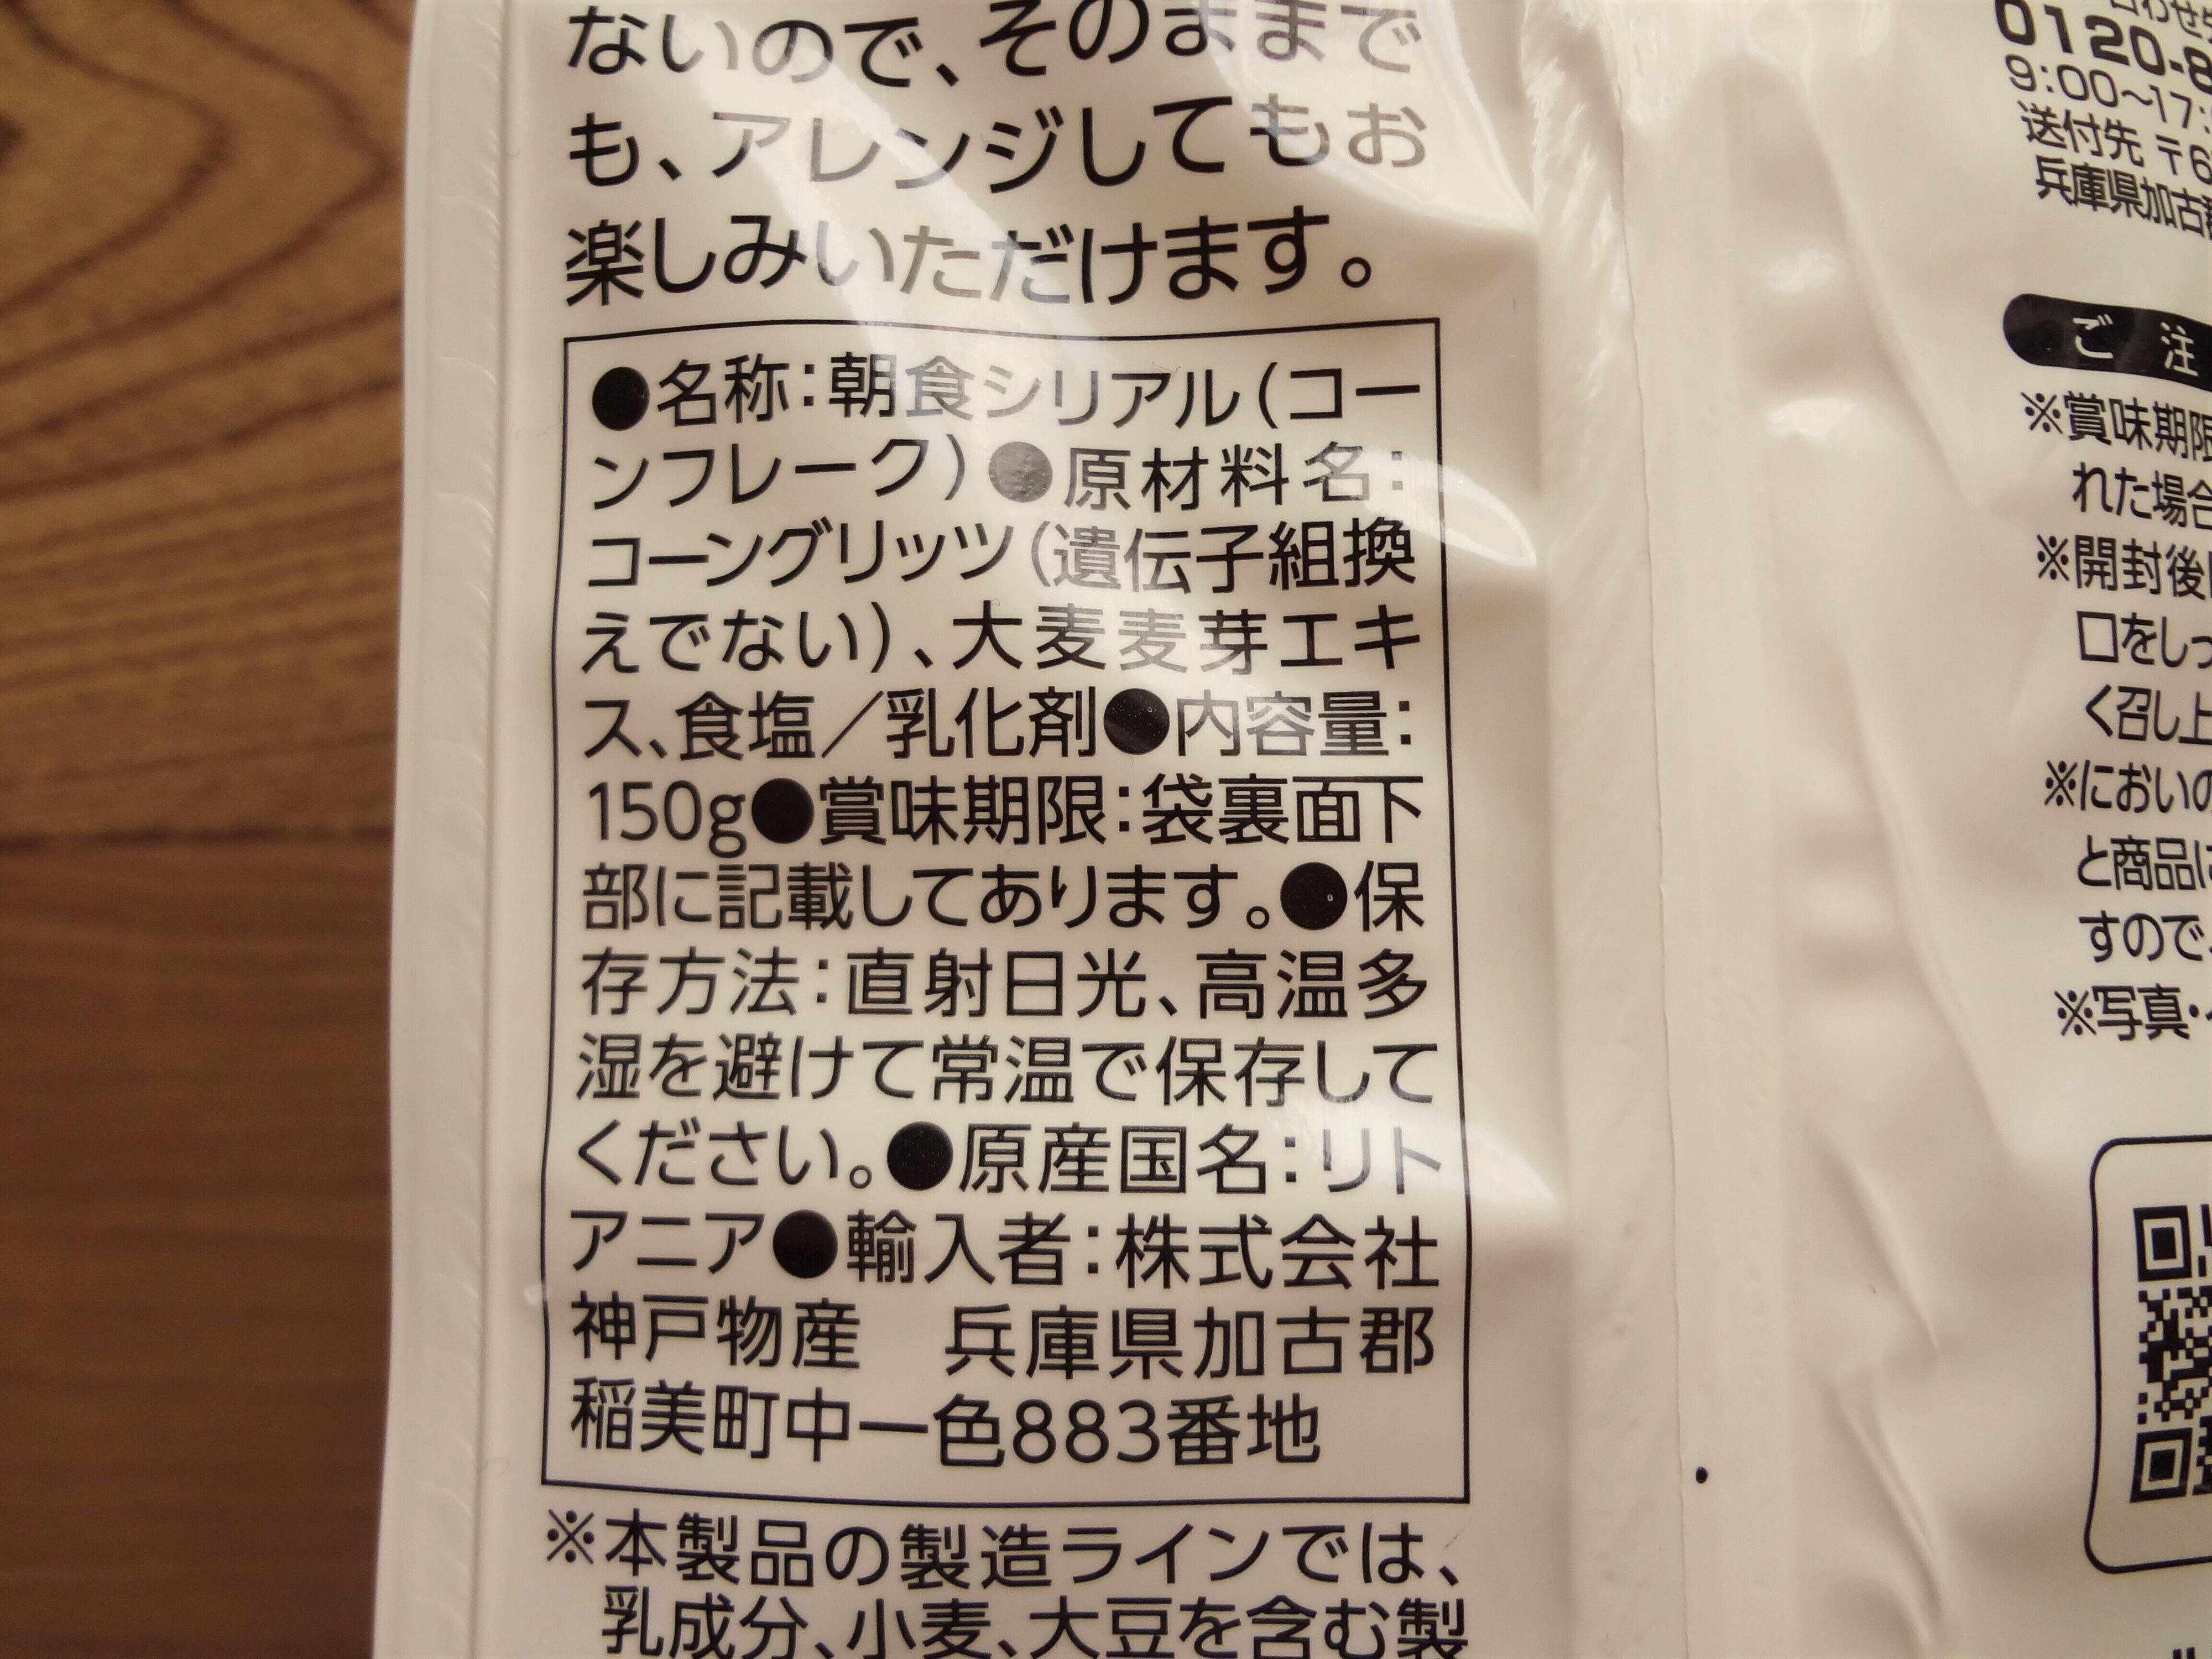 ないので、そのままで
も、アレンジしてもお
楽しみいただけます。
●名称：朝食シリアル（コー
ンフレーク）●原材料名：
コーングリッツ（遺伝子組換
えでない）、大麦麦芽エキ
ス、食塩／乳化剤●内容量：
150g●賞味期限：袋裏面下
部に記載してあります。●保
存方法：直射日光、高温多
湿を避けて常温で保存して
ください。●原産国名：リト
アニア●輸入者：株式会社
神戸物産　兵庫県加古郡
稲美町中一色883番地
※本製品の製造ラインでは、
乳成分、小麦、大豆を含む製
0120-8
9:00～17:
送付先 〒6
兵庫県加古
ご 注
※賞味期限
れた場合
※開封後
口をしっ
く召し上
※においの
と商品に
すので、
※写真・